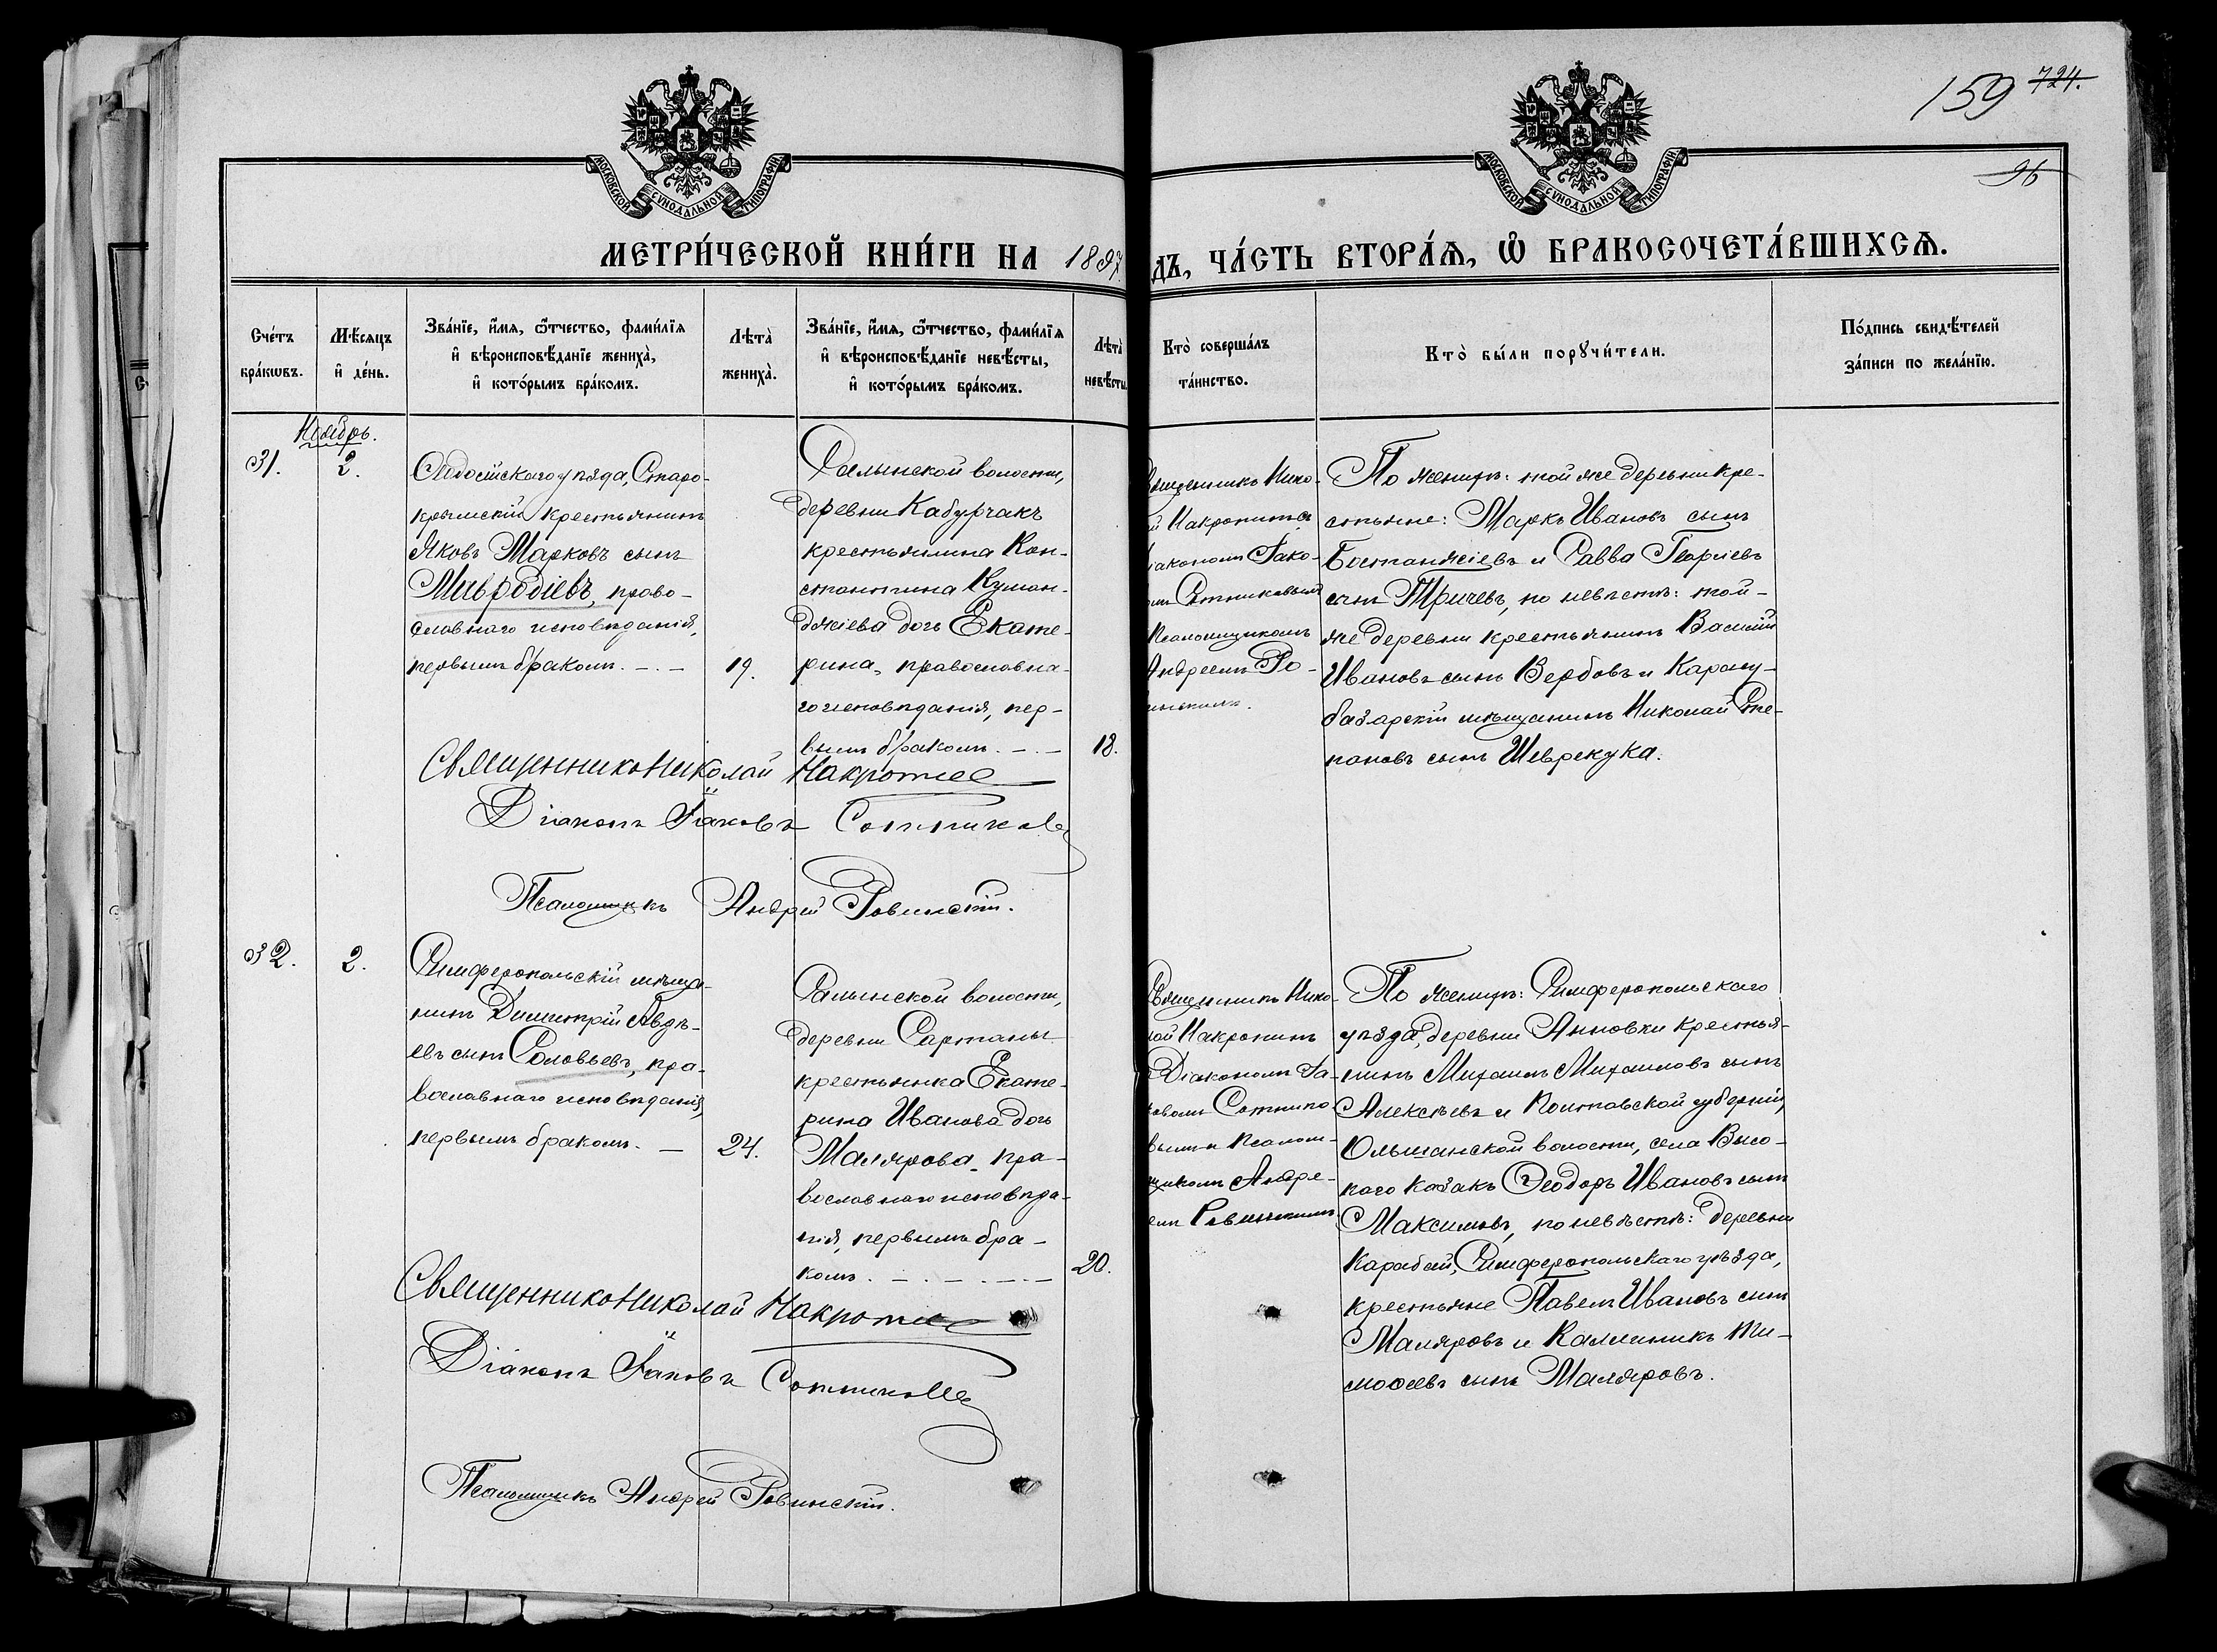 159 724.
96
МОСКОВСКОЙ СУНОДАЛЬНОЙ ТИПОГРАФІИ
МОСКОВСКОЙ СУНОДАЛЬНОЙ ТИПОГРАФІИ
МЕТРИ́ЧЕСКОЙ КНИ́ГИ НА 1897
ДЪ, ЧА́СТЬ ВТОРА́Я, Ѽ БРАКОСОЧЕТА́ВШИХСЯ.
Сче́тъ
бра́кѡвъ.
Мѣ́сяцъ
и҆ де́нь.
Зва́нїе, и҆́мя, ѻ҆́тчество, фами́лїя
и҆ вѣроисповѣ́данїе жениха̀,
и҆ кото́рымъ бра́комъ.
Лѣта̀
жениха̀.
Зва́нїе, и҆́мя, ѻ҆́тчество, фами́лїя
и҆ вѣроисповѣ́данїе невѣ́сты,
и҆ кото́рымъ бра́комъ.
Лѣта̀
невѣ́сты
Кто̀ соверша́лъ
та́инство.
Кто̀ бы́ли порꙋчи́тели.
По́дпись свидѣ́телей
за́писи по жела́нїю.
Ноябрь.
31.
2.
Ѳеодосійскаго уѣзда, Старо-
крымскій крестьянинъ
Яковъ Марковъ сынъ
Мавродіевъ, право-
славнаго исповѣданія,
первымъ бракомъ. - . -
19.
Салынской волости,
деревни Кабурчакъ
крестьянина Кон-
стантина Куман-
джіева дочь Екате-
рина, православна-
го исповѣданія, пер-
вымъ бракомъ. - . -
18.
Священникъ Нико-
й Накропинъ
іакономъ Іако-
Сотниковымъ
Псаломщикомъ
Андреемъ Ро-
По женихѣ: той же деревни кре-
стьяне: Маркъ Ивановъ сынъ
Бостанжіевъ и Савва Георгіевъ
сынъ Тричевъ, по невѣстѣ: той-
же деревни крестьянинъ Василій
Ивановъ сынъ Вербовъ и Карасу-
базарскій мѣщанинъ Николай Сте-
пановъ сынъ Шеврекука.
Священникъ Николай Накропинъ
Діаконъ Іаковъ Сотниковъ
Псаломщикъ Андрей Ровинскій.
32.
2.
Симферопольскій мѣща-
нинъ Димитрій Авдѣ-
евъ сынъ Соловьевъ, пра-
вославнаго исповѣданія,
первымъ бракомъ. -
24.
Салынской волости,
деревни Сартаны
крестьянка Екате-
рина Иванова дочь
Малярова, пра-
вославнаго исповѣда-
нія, первымъ бра-
комъ. - . - . - . -
20.
Священникъ Нико-
лай Накропинъ
Діакономъ Іа-
ковомъ Сотнико-
вымъ и Псалом-
щикомъ Андре-
емъ Ровинскимъ.
По женихѣ: Симферопольскаго
уѣзда, деревни Анновки крестья-
нинъ Михаилъ Михаиловъ сынъ
Алексѣевъ и Полтавской губерніи,
Ольшанской волости, села Высо-
каго казакъ Ѳеодоръ Ивановъ сынъ
Максимовъ, по невѣстѣ: деревни
Карабай, Симферопольскаго уѣзда,
крестьяне Павелъ Ивановъ сынъ
Маляровъ и Каллиникъ Ти-
моѳеевъ сынъ Маляровъ.
Священникъ Николай Накропинъ
Діаконъ Іаковъ Сотниковъ
Псаломщикъ Андрей Ровинскій.